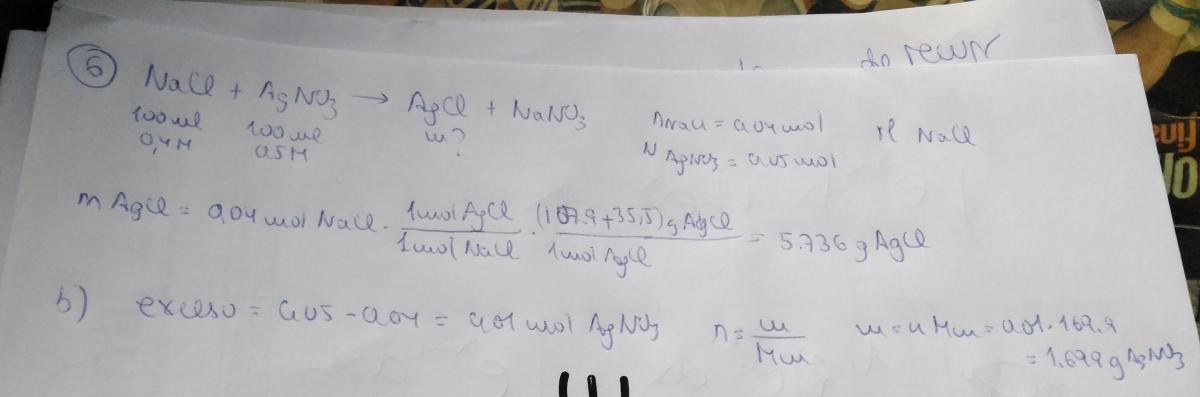 do rewr
6 NaCl + AgNO3 → AgCl + NaNO3
100 ml 100 ml m?
0,4M 0.5M
nNaCl = 0,04 mol rl NaCl
N AgNO3 = 0,05 mol
m AgCl = 0,04 mol NaCl · 1 mol AgCl / 1 mol NaCl · (107.9+35,5) g AgCl / 1 mol AgCl = 5.736 g AgCl
b) exceso = 0,05 - 0,04 = 0,01 mol AgNO3 n = m / Mm m = n Mm = 0,01 · 169.9
= 1.699 g AgNO3